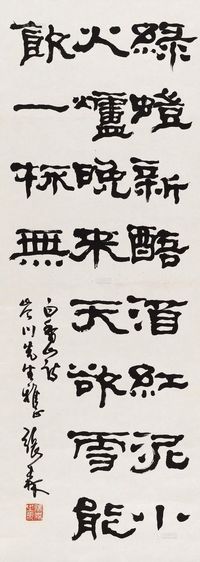 綠螘新醅酒紅泥小
火爐晚來天欲雪能
飲一杯無
白香山詩
川先生雅正 張森